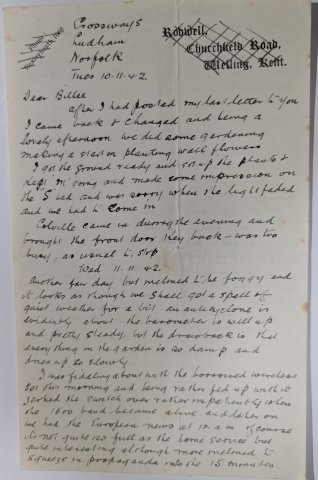 Crossways
Ludham
Norfolk
Tues 10.11.42.
Rodwell,
Churchfield Road,
Welling, Kent.
Dear Billee
after I had posted my last letter to you
I came back & changed and being a
lovely afternoon we did some gardening
making a start on planting wall flowers
I got the ground ready and got up the plants &
kept M going and made some impression on
the "S" bed and was sorry when the light faded
and we had to come in
Colville came in during the evening and
brought the front door key back - was too
busy, as usual to stop
Wed 11.11.42.
Another fair day but inclined to be foggy and
it looks as though we shall got a spell of
quiet weather for a bit. an anticyclone is
evidently about the barometer is well up
and pretty steady, but the drawback is that
everything in the garden is so damp and
dries up so slowly
I was fiddling about with the borrowed wireless
set this morning and being rather fed up with it
I jerked the switch over rather impatiently when
the 1500 band became alive and later on
we had the European news at 10 a.m. of course
its not quite so full as the home service but
quite interesting although more inclined to
squeeze in propaganda into the 15 minutes